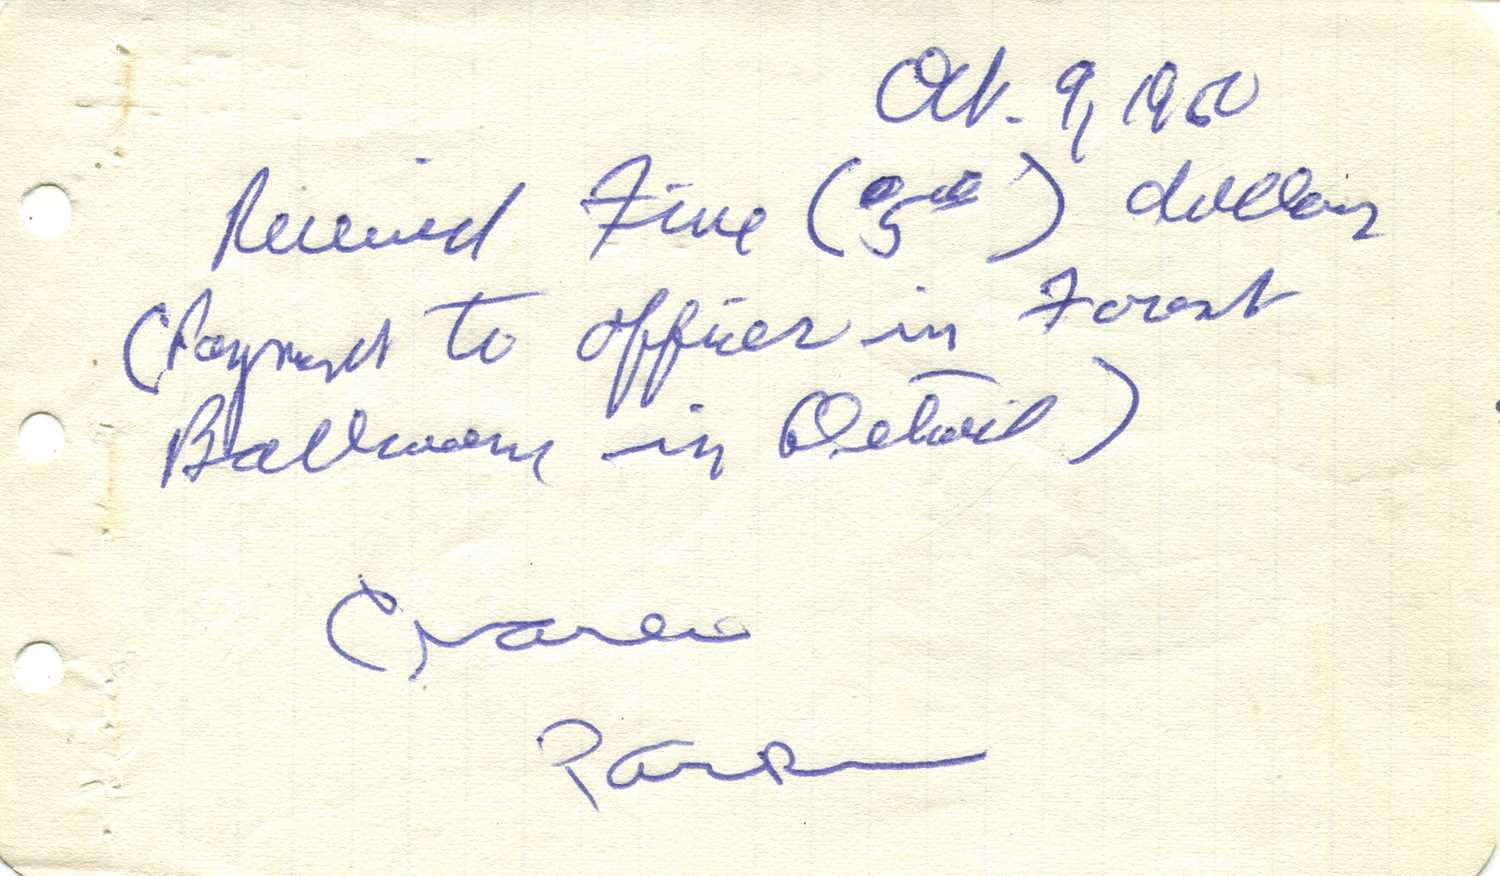 Oct. 9, 1950
Received Five (5⁰⁰) dollars
(Payment to officer in Forest
Ballroom in Detroit)
Charlie
Parker